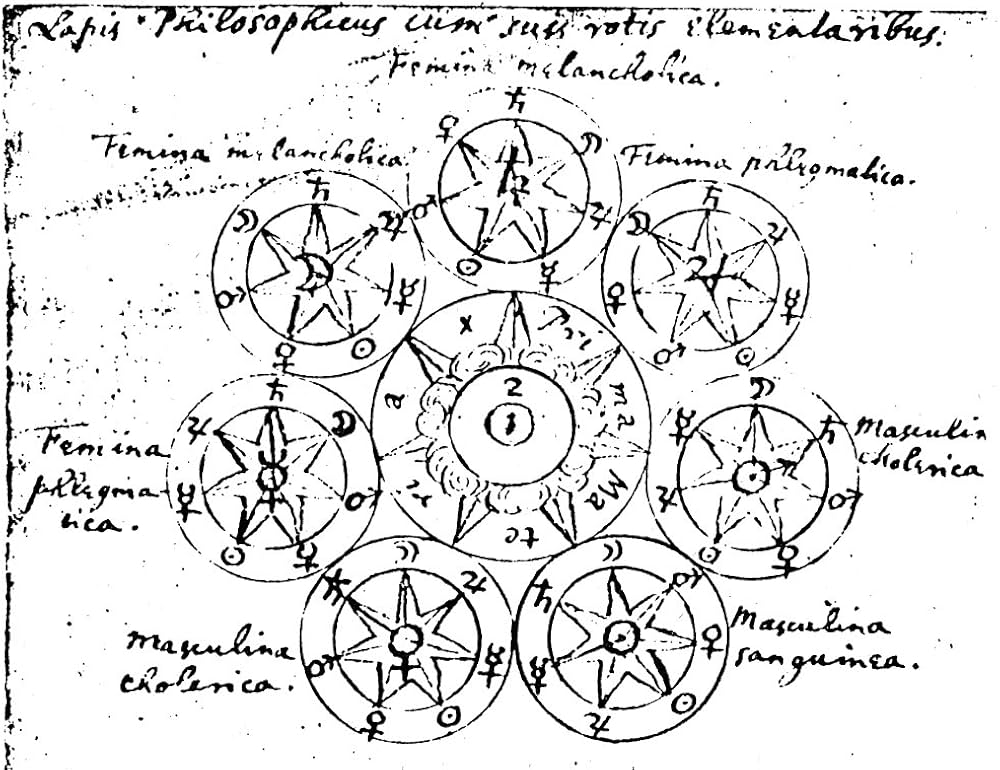 Lapis Philosophicus cum suis rotis elementaribus.
Femina melancholica.
Femina melancholica.
Femina phlegmatica.
♀ ♄ ☽
♂ ♃
☉ ☿
☽ ♄ ♃
☽
♂ ☿
♀ ☉
☽ ♄ ♃
♃
♀ ☿
♂ ☉
x
a ma
2
1
ri Ma
te
Femina
phlegma
tica.
♃ ♄ ☽
☿
☿ ♂
☉ ♀
Masculin
cholerica
☿ ☽ ♄
☉
♃ ♂
☉ ♀
Masculina
cholerica.
♄ ☽ ♃
♀
♂ ☿
♀ ☉
Masculina
sanguinea.
♄ ☽ ♂
☉
☿ ♀
♃ ☉